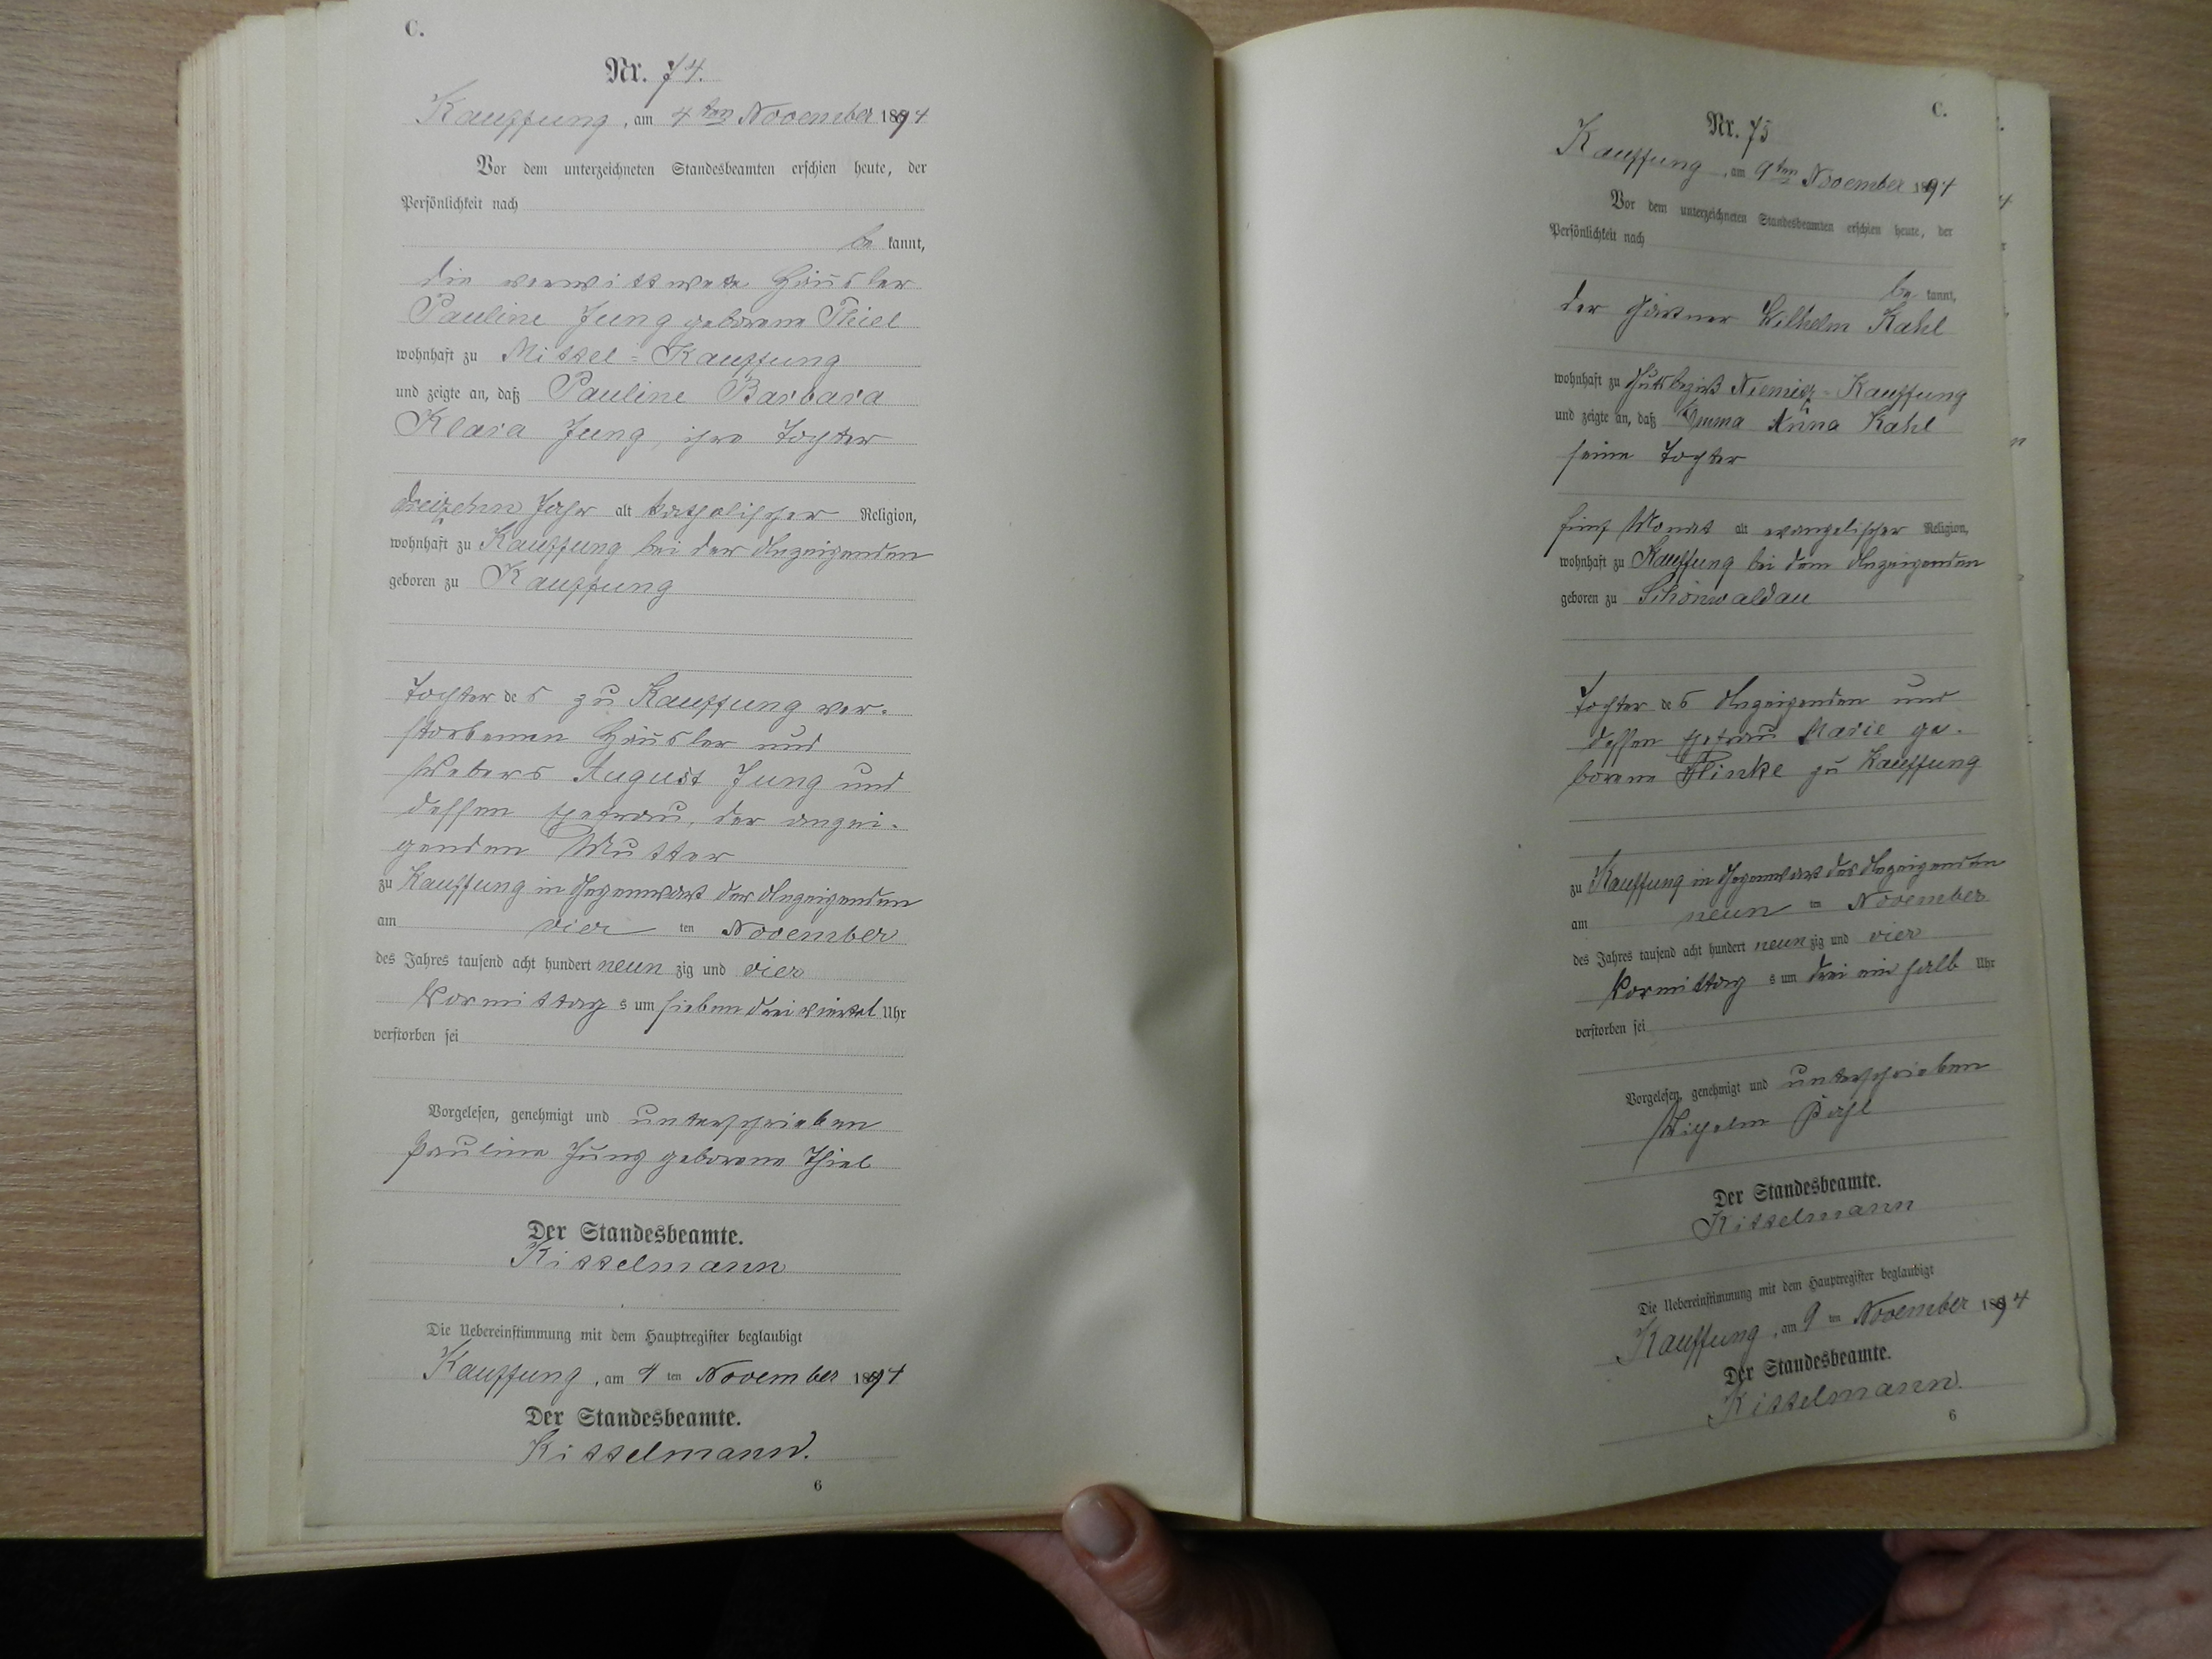 C.
Nr. 74.
Kauffung, am 4ten November 1894
Vor dem unterzeichneten Standesbeamten erschien heute, der
Persönlichkeit nach
be kannt,
die verwittwete Häusler
Pauline Jung geborene Thiel
wohnhaft zu Mittel=Kauffung
und zeigte an, daß Pauline Barbara
Klara Jung, ihre Tochter
dreizehn Jahr alt katholischer Religion,
wohnhaft zu Kauffung bei der Anzeigenden
geboren zu Kauffung
Tochter des zu Kauffung ver-
storbenen Häusler und
Webers August Jung und
dessen Ehefrau, der anzei-
genden Mutter
zu Kauffung in Gegenwart der Anzeigenden
am vier ten November
des Jahres tausend acht hundert neun zig und vier
Vormittag s um sieben dreiviertel Uhr
verstorben sei
Vorgelesen, genehmigt und unterschrieben
Pauline Jung geborene Thiel
Der Standesbeamte.
Kittelmann
Die Uebereinstimmung mit dem Hauptregister beglaubigt
Kauffung, am 4 ten November 1894
Der Standesbeamte.
Kittelmann.
6
C.
Nr. 75
Kauffung, am 9ten November 1894
Vor dem unterzeichneten Standesbeamten erschien heute, der
Persönlichkeit nach
be kannt,
der Gärtner Wilhelm Kahl
wohnhaft zu Gutsbezirk Niemitz-Kauffung
und zeigte an, daß Emma Anna Kahl
seine Tochter
fünf Monat alt evangelischer Religion,
wohnhaft zu Kauffung bei dem Anzeigenden
geboren zu Schönwaldau
Tochter des Anzeigenden und
dessen Ehefrau Marie ge-
borene Flinke zu Kauffung
zu Kauffung in Gegenwart des Anzeigenden
am neun ten November
des Jahres tausend acht hundert neun zig und vier
Vormittag s um drei ein halb Uhr
verstorben sei
Vorgelesen, genehmigt und unterschrieben
Wilhelm
Der Standesbeamte.
Kittelmann
Die Uebereinstimmung mit dem Hauptregister beglaubigt
Kauffung, am 9 ten November 1894
Der Standesbeamte.
Kittelmann.
6